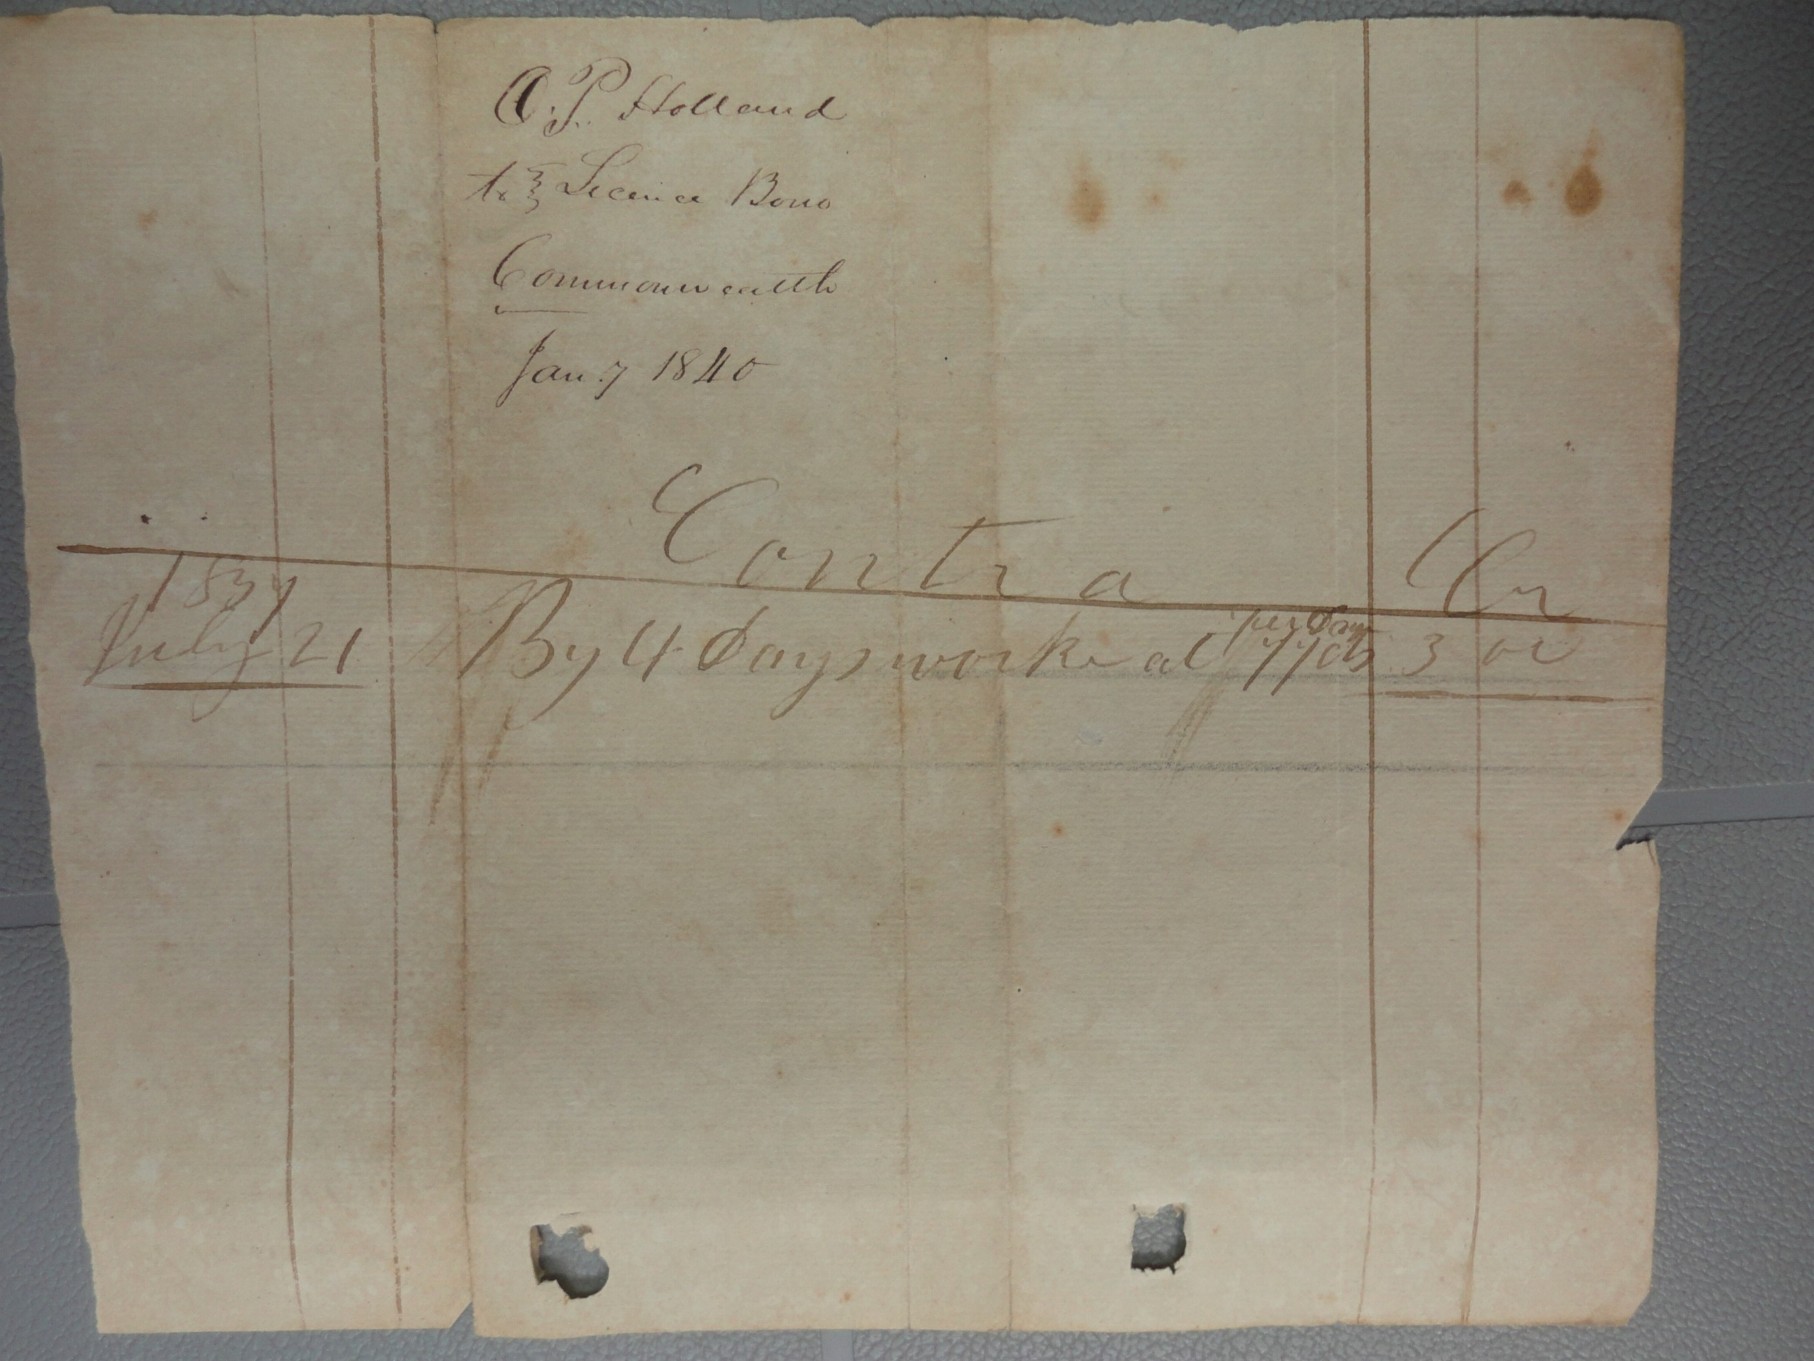 O. P. Holland
to } Licence Bond
Commonwealth
Jan. 7 1840
Contra Cr
1839
July 21 By 4 Days worke at 77 cts per Day 3 00